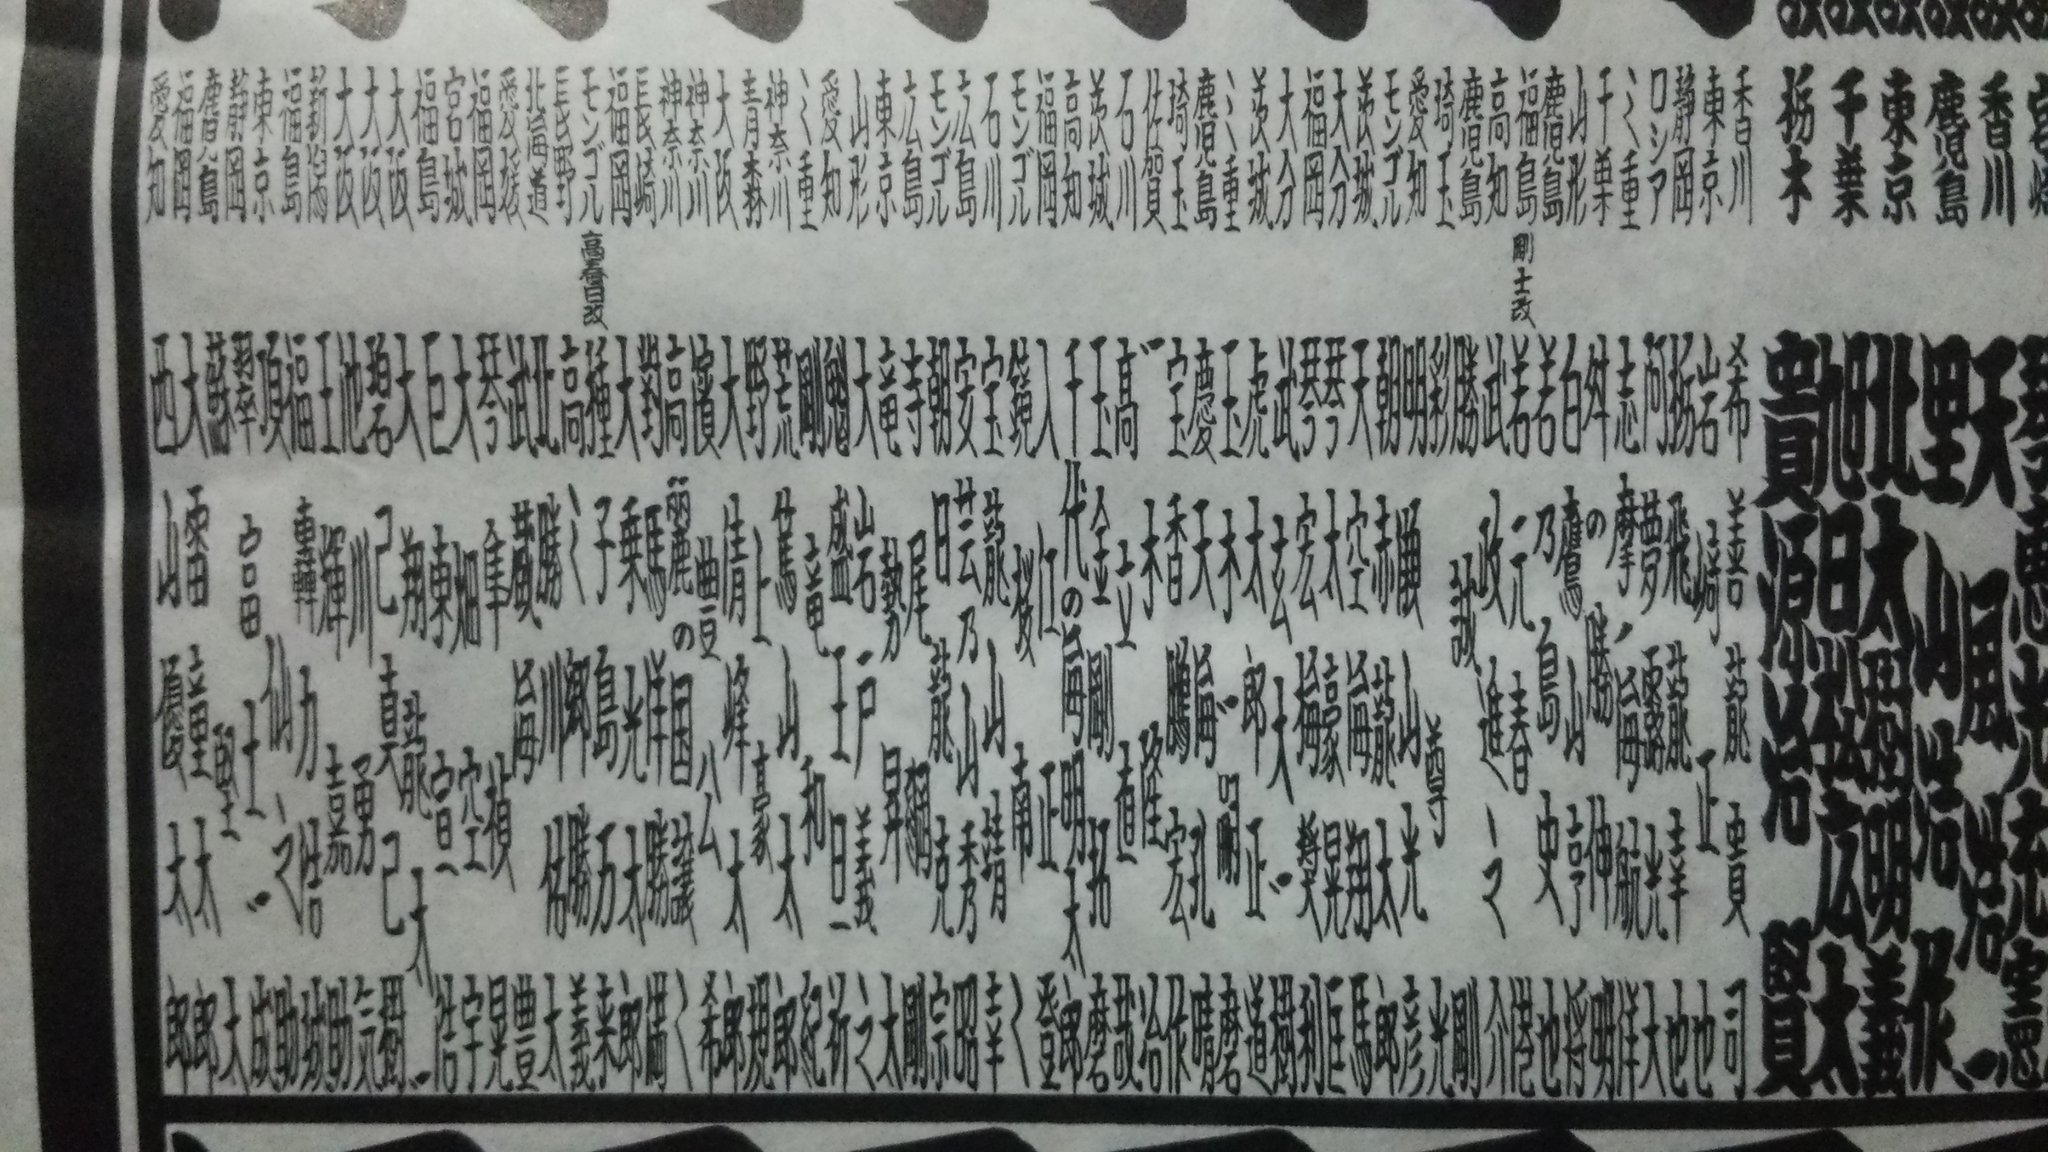 宮崎 琴恵光充憲
香川 天風浩一
鹿児島 里山浩作
東京 北太樹明義
千葉 旭日松広太
栃木 貴源治賢
香川 希善龍貴司
東京 岩崎正也
静岡 栃飛龍幸也
ロシア 阿夢露光大
ミ重 志摩ノ海航洋
千葉 舛の勝伸明
山形 白鷹山亨将
鹿児島 若乃島史也
福島 剛士改 若元春港
高知 武政進之介
鹿児島 勝誠剛
埼玉 彩尊光
愛知 明瀬山光彦
モンゴル 朝赤龍太郎
茨城 天空海翔馬
大分 琴太豪晃匡
福岡 琴宏梅英利
大分 武玄大樹
茨城 虎太郎正道
ミ重 玉木一磨
鹿児島 慶天海孔晴
埼玉 宝香鵬宏作
佐賀 一木隆治
石川 高立直哉
茨城 玉金剛拓磨
高知 千代の海明太郎
福岡 入江正登
モンゴル 鏡桜南二
石川 宝龍山靖幸
広島 安芸乃山秀昭
モンゴル 朝日龍克宗
広島 寺尾翔剛
東京 竜勢昇太
山形 大岩戸義之
愛知 魁盛王旦祈
ミ重 剛竜和紀
神奈川 荒篤山太郎
青森 野上豪規
大阪 大清峰太郎
神奈川 濱豊八公希
神奈川 高麗の国議二
長崎 對馬洋勝満
福岡 大乗光太郎
モンゴル 高春日改 種子島万来
長野 高ミ郷勝義
北海道 北勝川佑太
愛媛 武蔵海豊
福岡 琴隼禎晃
宮城 大畑空宇
福島 巨東宣浩
大阪 大翔龍大一
大阪 碧己真己樹
大阪 池川勇気
新潟 王輝嘉助
福島 福轟力浩城
東京 頂仙之助
静岡 翠富士一成
鹿児島 蘇
福岡 大雷童太郎
愛知 西山優太郎